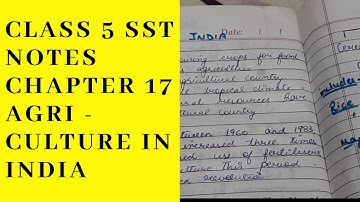 CLASS 5 SST
NOTES
CHAPTER 17
AGRI -
CULTURE IN
INDIA
INDIA
Date:
owing crops for food
agriculture
agricultural country.
tropical climate
ral resources have
ultural country
between 1960 and 1983
increased three times
ed use of fertilisers
culture. This period
en revolution
Cere
includes
Rice
Ma